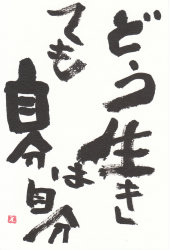 どう生き
ても
自分は自分